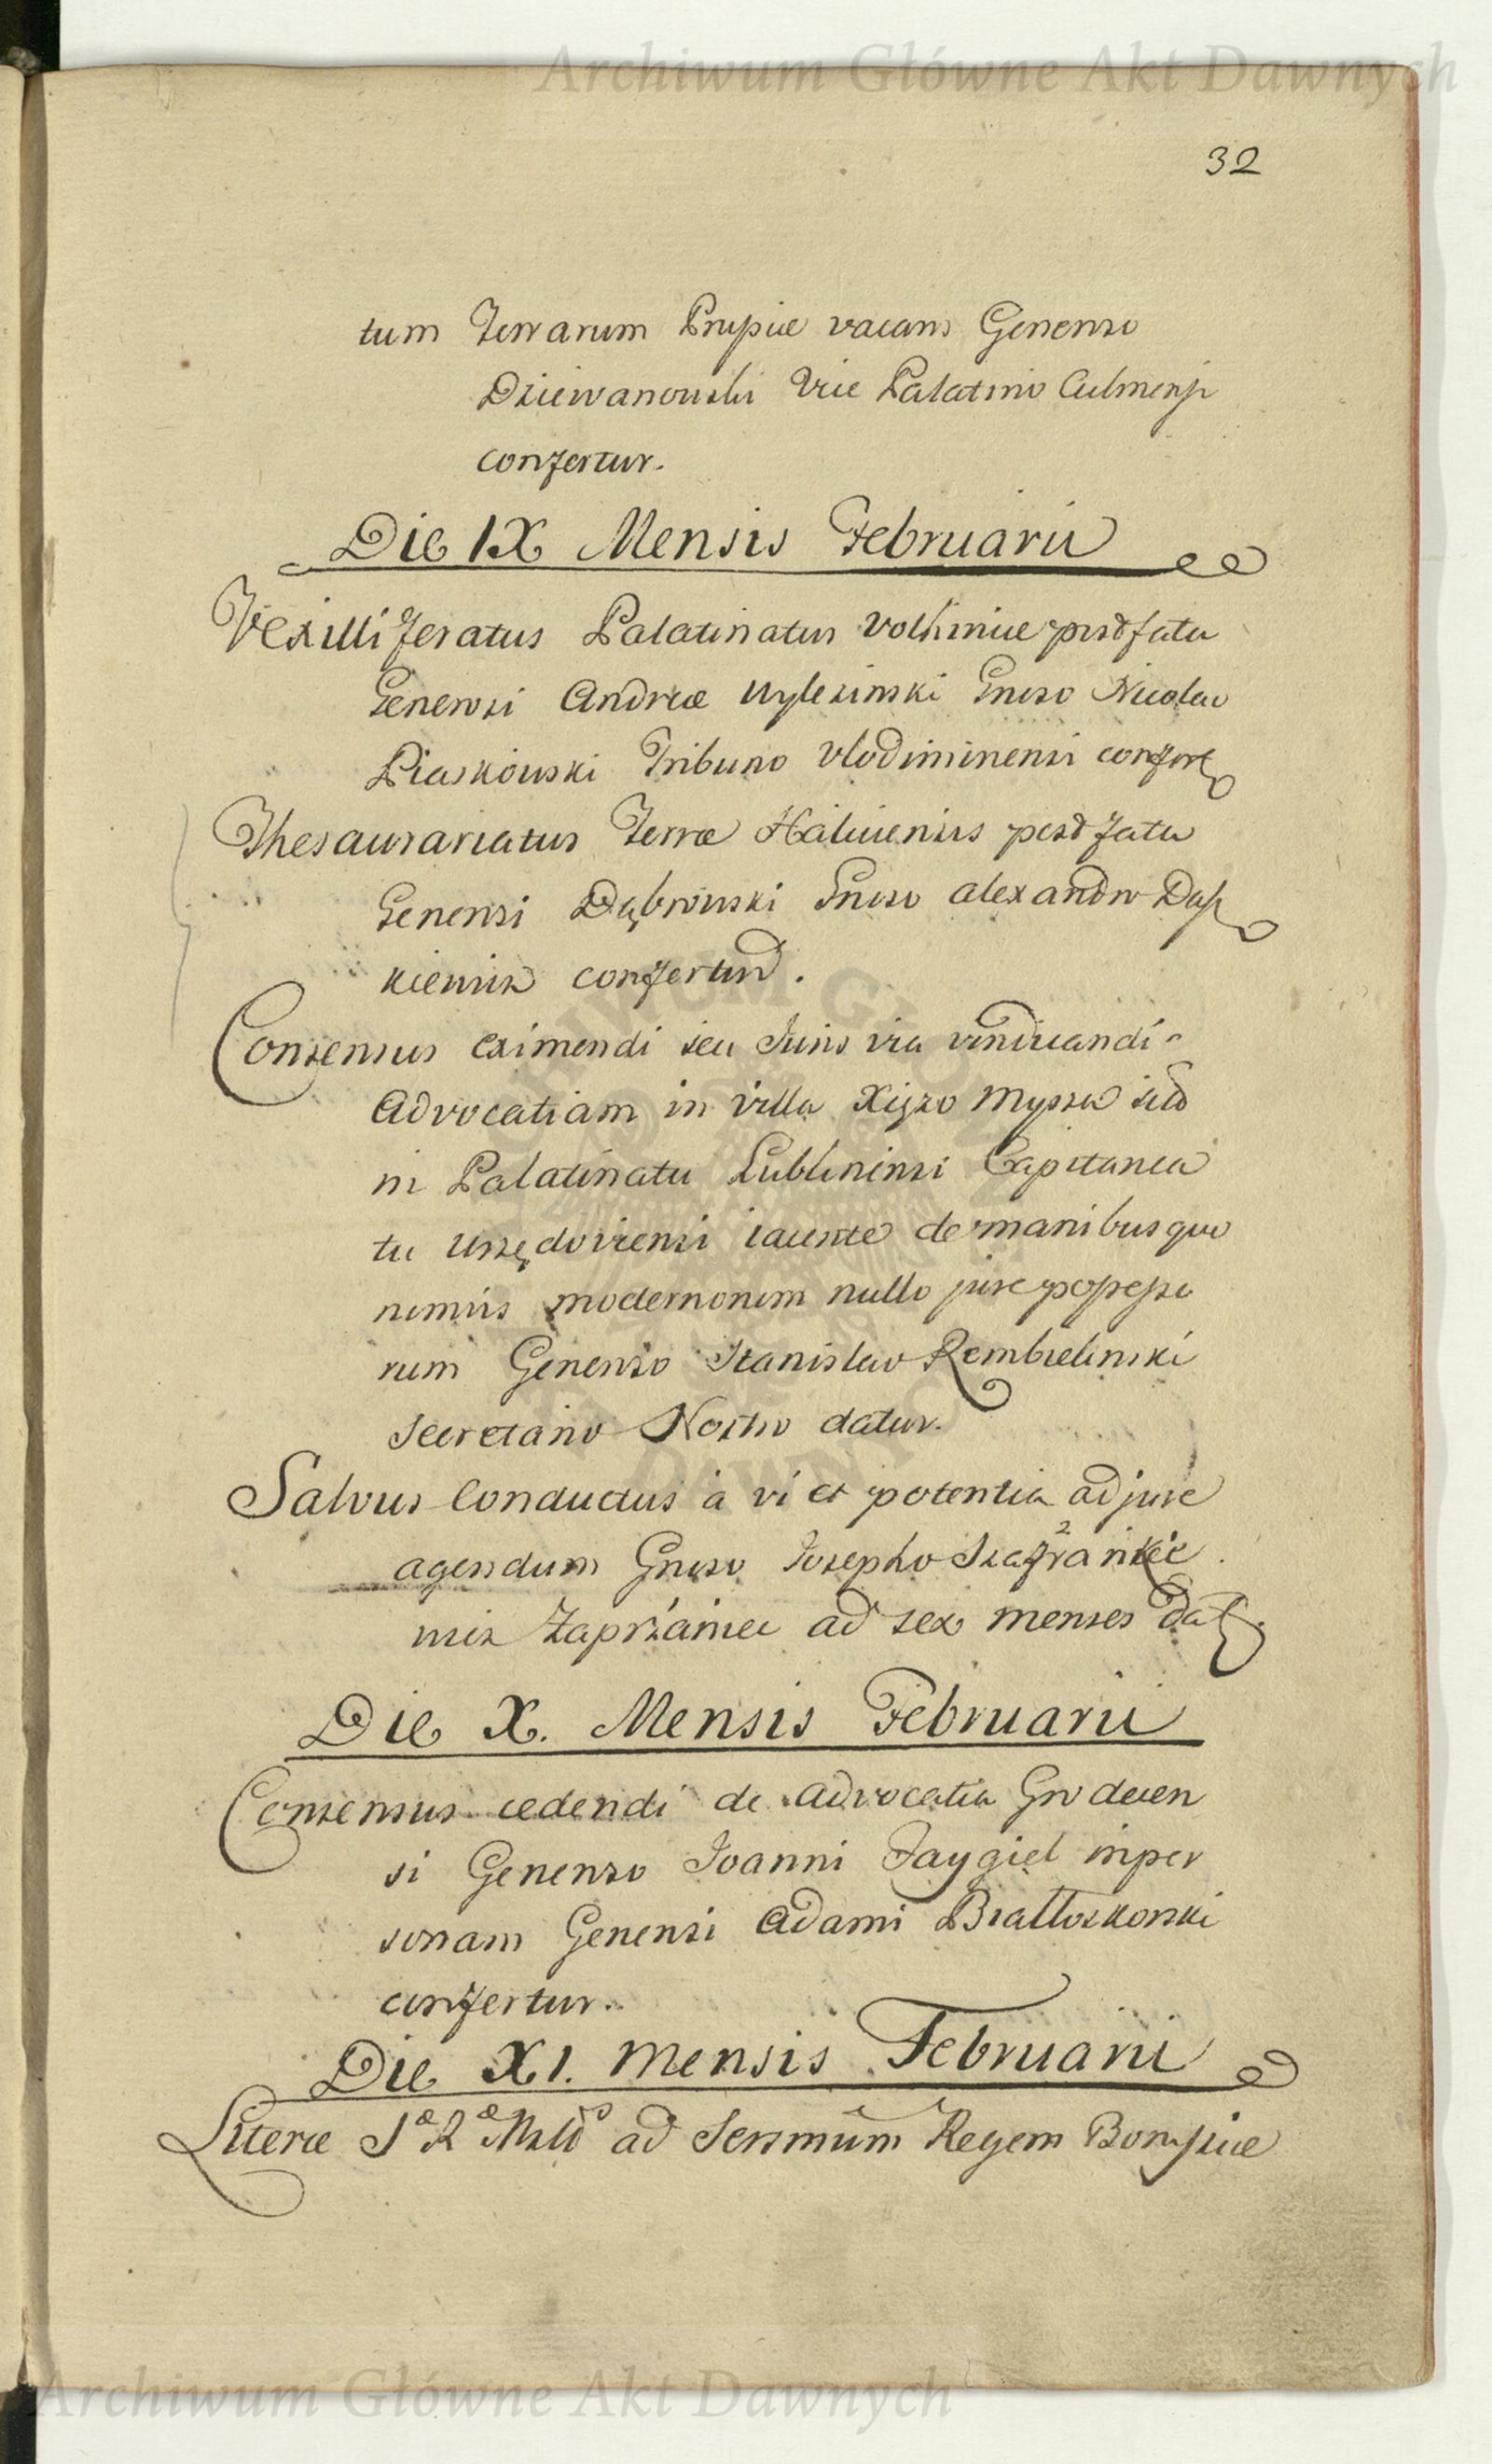 Archiwum Główne Akt Dawnych
32
tum Terrarum Prussiæ vacans Generoso
Dziewanowski Vice Palatino Culmensi
confertur.
Die IX Mensis Februarii
Vexilliferatus Palatinatus Volhiniæ post fata
Generosi Andreæ Wylezinski Gneroso Nicolao
Piaskowski Tribuno Vlodimiriensi confert
Thesaurariatus Terræ Haliciensis post fata
Generosi Dąbrowski Gnroso Alexandro Dasz
kiewicz confertur.
Consensus eximendi seu Juris via vindicandi
Advocatiam in villa Xięzo Myssa
in Palatinatu Lublinensi Capitanea
tu Urzędoviensi iacente de manibus quo
rumvis modernorum nullo jure possesso
rum Generoso Stanislao Rembielinski
Secretario Nostro datur.
Salvus Conductus à vi et potentia ad jure
agendum Gnroso Josepho Szafrankie
wicz Zaprzaniec ad sex menses dat
Die X. Mensis Februarii
Consensus cedendi de Advocatia Grodecen
si Generoso Joanni Faygiel in per
sonam Generosi Adami Białłoskorski
confertur.
Die XI. Mensis Februarii
Literæ S R ad Sersmum Regem Borussiæ
Archiwum Główne Akt Dawnych